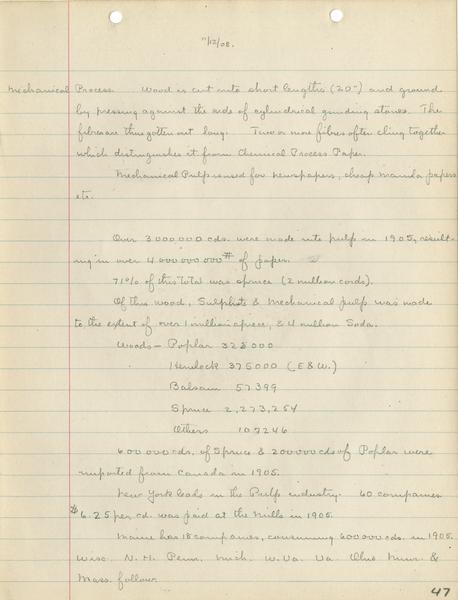 11/12/08.
Mechanical Process. Wood is cut into short lengths (20") and ground
by pressing against the side of cylindrical grinding stones. The
fibres are thus gotten out long. Two or more fibres often cling together
which distinguishes it from Chemical Process Paper.
Mechanical Pulp is used for newspapers, cheap manila papers
etc.
Over 3000000 cds. were made into pulp in 1905, result-
ing in over 4000000000# of paper.
71% of this total was spruce (2 million cords).
Of this wood, Sulphite & Mechanical pulp was made
to the extent of over 1 million apiece, & 4 million Soda.
Woods - Poplar 328000
Hemlock 375000 (E & W.)
Balsam 57399
Spruce 2,273,254
Others 107246
600000 cds. of Spruce & 200000 cds of Poplar were
imported from Canada in 1905.
New York leads in the Pulp industry. 60 companies
$6.25 per cd. was paid at the mills in 1905.
Maine has 18 companies, consuming 600000 cds. in 1905.
Wisc. N. H. Penn. Mich. W. Va. Va. Ohio Minn. &
Mass. follow.
47